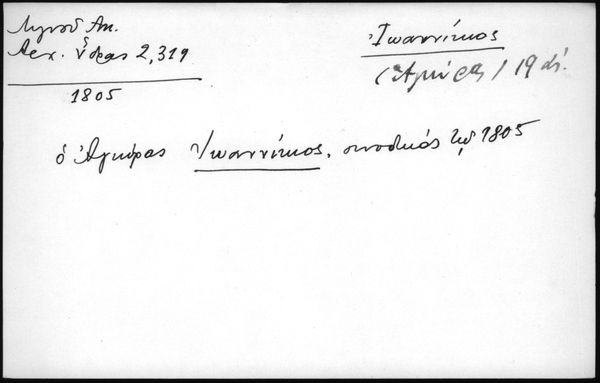 Λιγνοῦ Ἀν.
Ἀρχ. Ὕδρας 2,319
1805
Ἰωαννίκιος
(Ἀγκύρας) 19 αἰ.
ὁ Ἀγκύρας Ἰωαννίκιος, συνοδικός τῷ 1805